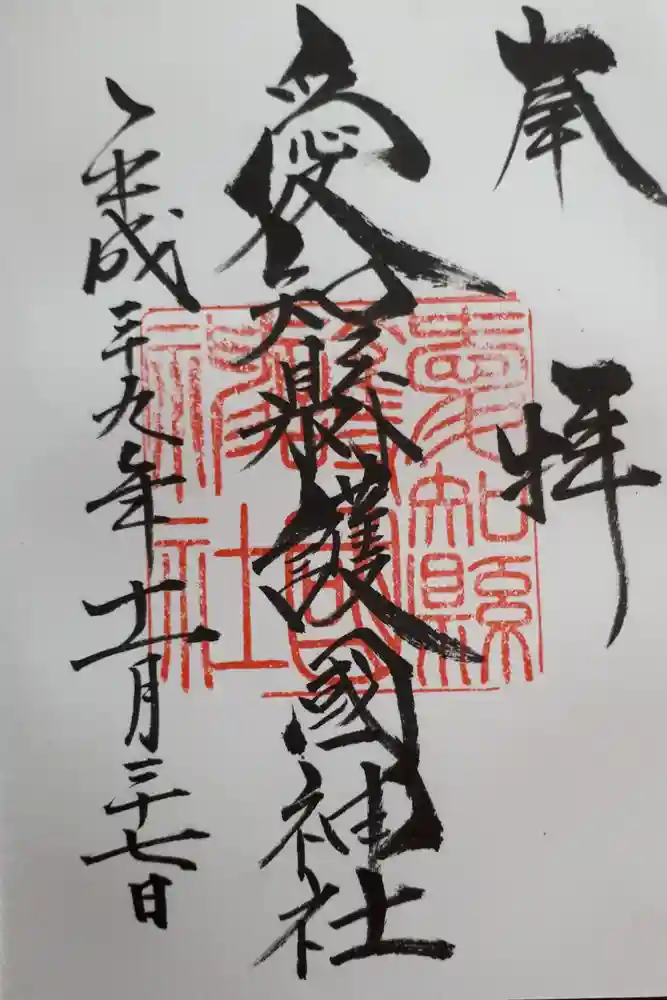 奉拝
愛知縣護國神社
愛知縣
護國
神社
平成二十九年十一月二十七日